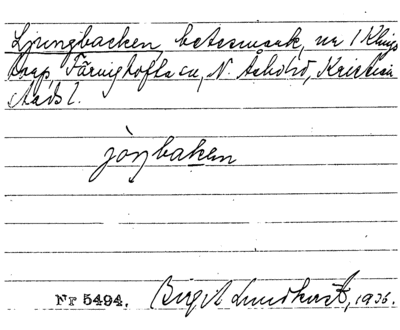 Ljungbacken, betesmark, nr 1 Klings
torp, Färingtofta sn, N. Åsbo hd, Kristian
stads l.
jöŋbakən
Nr 5494. Birgit Lundkvist, 1936.